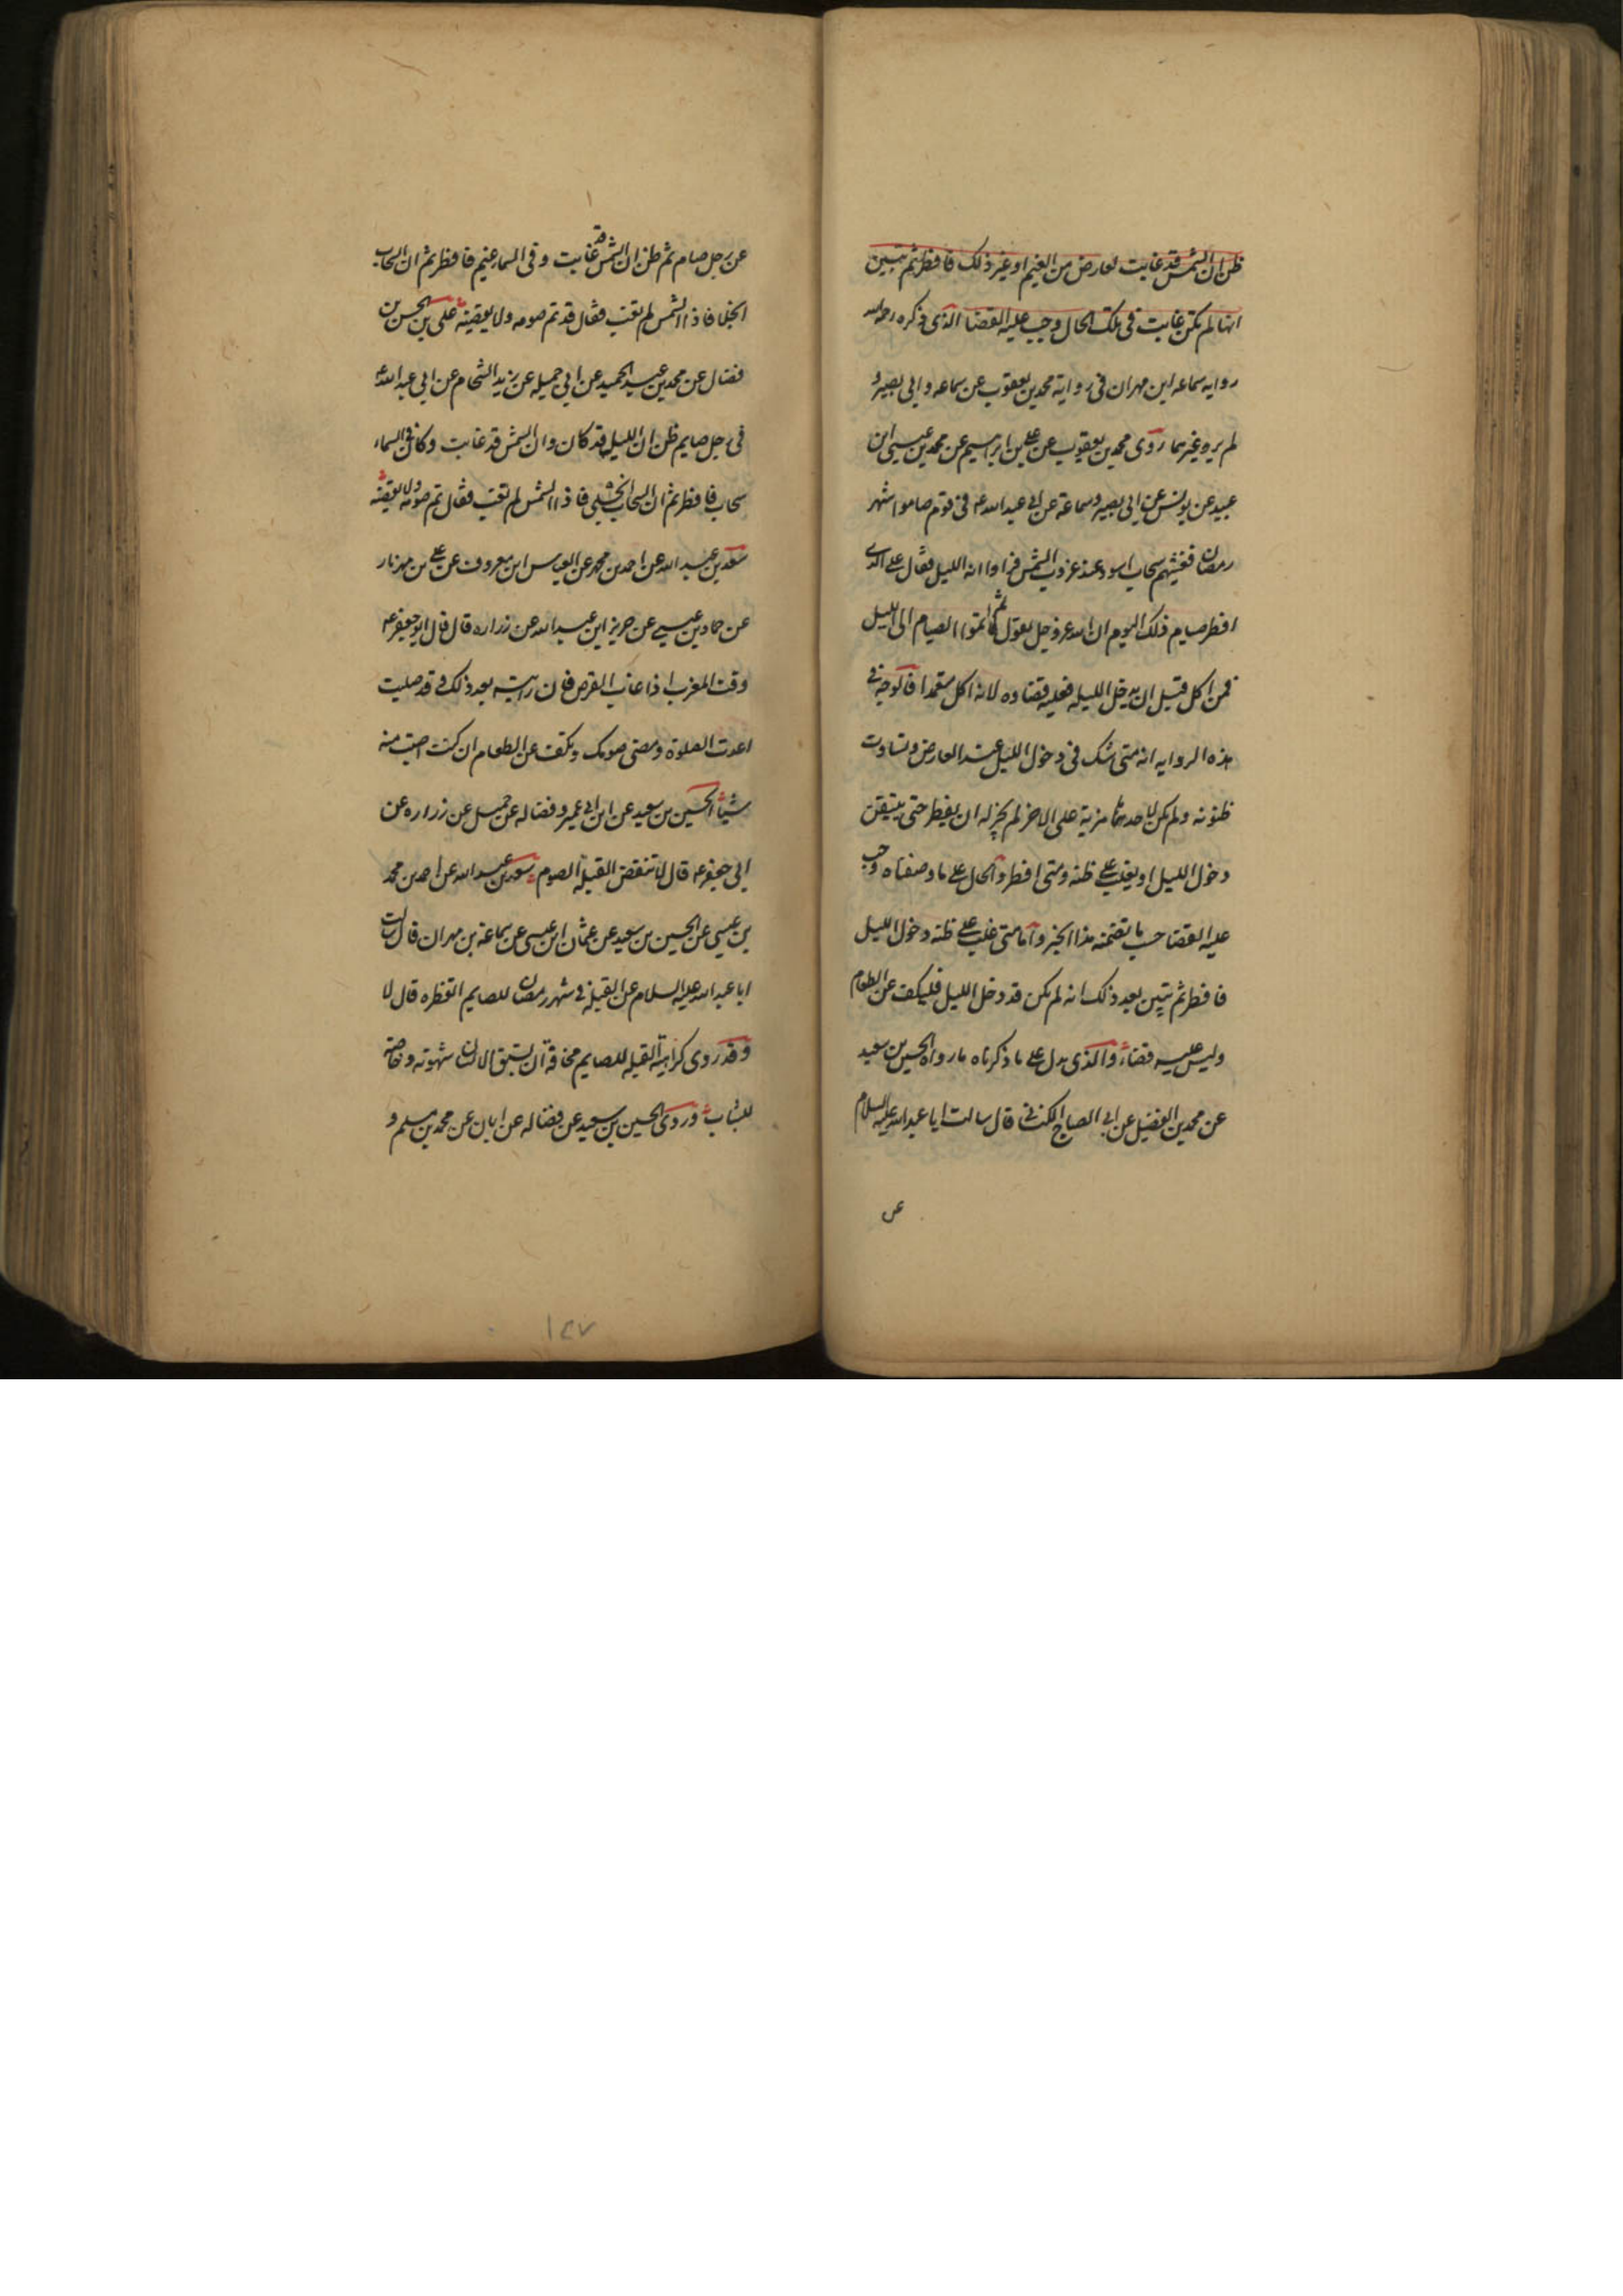 ظن ان الشمس قد غابت لعارض من الغيم او غير ذلك فافطر ثم تبين
انها لم تكن غابت في تلك الحال وجب عليه القضا الذى ذكره رحمه الله
روايه سماعه ابن مهران فى رواية محمد بن يعقوب عن سماعه وابى بصير و
لم يروه غيرهما روى محمد بن يعقوب عن على بن ابرهيم عن محمد بن عيسى ابن
عبيد عن يونس عن ابى بصير وسماعة عن ابى عبد الله ع فى قوم صاموا شهر
رمضان فغشيهم سحاب اسود عند غروب الشمس فراوا انه الليل فقال على الذى
افطر صيام ذلك اليوم ان الله عز وجل يقول ثم اتموا الصيام الى الليل
فمن اكل قبل ان يدخل الليل فعليه قضاوه لانه اكل متعمدا فالوجه فى
هذه الروايه انه متى شك فى دخول الليل عند العارض وتساوت
ظنونه ولم يكن لاحدهما مزية على الاخر لم يجز له ان يفطر حتى يتيقن
دخول الليل او يغلب على ظنه ومتى افطر والحال على ما وصفناه وجب
عليه القضا حسب ما تضمنه هذا الخبر واما متى غلب على ظنه دخول الليل
فافطر ثم تبين بعد ذلك انه لم يكن قد دخل الليل فليكف عن الطعام
وليس عليه قضاء والذى يدل على ما ذكرناه ما رواه الحسين بن سعيد
عن محمد بن الفضيل عن ابى الصباح الكنانى قال سالت ابا عبد الله عليه السلام
عن
عن رجل صام ثم ظن ان الشمس قد غابت وفى السماء غيم فافطر ثم ان السحاب
انجلا فاذا الشمس لم تغب فقال قد تم صومه ولا يقضيه على بن الحسن بن
فضال عن محمد بن عبد الحميد عن ابى جميله عن زيد الشحام عن ابى عبد الله ع
فى رجل صايم ظن ان الليل قد كان وان الشمس قد غابت وكان فى السماء
سحاب فافطر ثم ان السحاب انجلى فاذا الشمس لم تغب فقال تم صومه ولا يقضيه
سعد بن عبد الله عن احمد بن محمد عن العباس ابن معروف عن على بن مهزيار
عن حماد بن عيسى عن حريز ابن عبد الله عن زراره قال قال ابو جعفر ع
وقت المغرب اذا غاب القرص فان رايته بعد ذلك وقد صليت
اعدت الصلوة ومضى صومك وتكف عن الطعام ان كنت اصبت منه
شيئا الحسين بن سعيد عن ابن ابى عمير وفضاله عن جميل عن زراره عن
ابى جعفر ع قال لا تنقض القبلة الصوم سعد بن عبد الله عن احمد بن محمد
بن عيسى عن الحسين بن سعيد عن عثمان ابن عيسى عن سماعة بن مهران قال سالت
ابا عبد الله عليه السلام عن القبله فى شهر رمضان للصايم اتفطره قال لا
وقد روى كراهية القبله للصايم مخافة ان تسبق الانسان شهوته وخاصة
للشاب وروى الحسين بن سعيد عن فضاله عن ابان عن محمد بن مسلم و
١٤٧